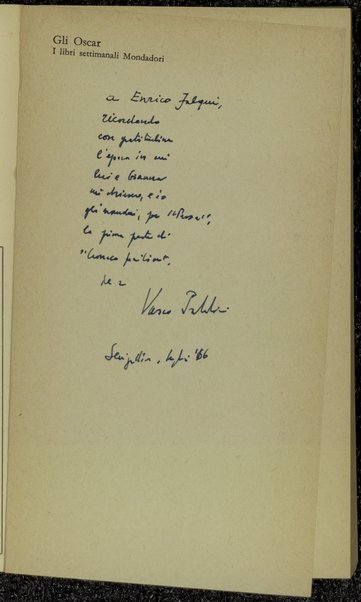 Gli Oscar
I libri settimanali Mondadori
a Enrico Falqui,
ricordando
con gratitudine
l'epoca in cui
lui e
mi chiesero, e io
gli mandai, per "Prosa",
la prima parte di
"Cronaca familiare".
Vasco Pratolini
'66